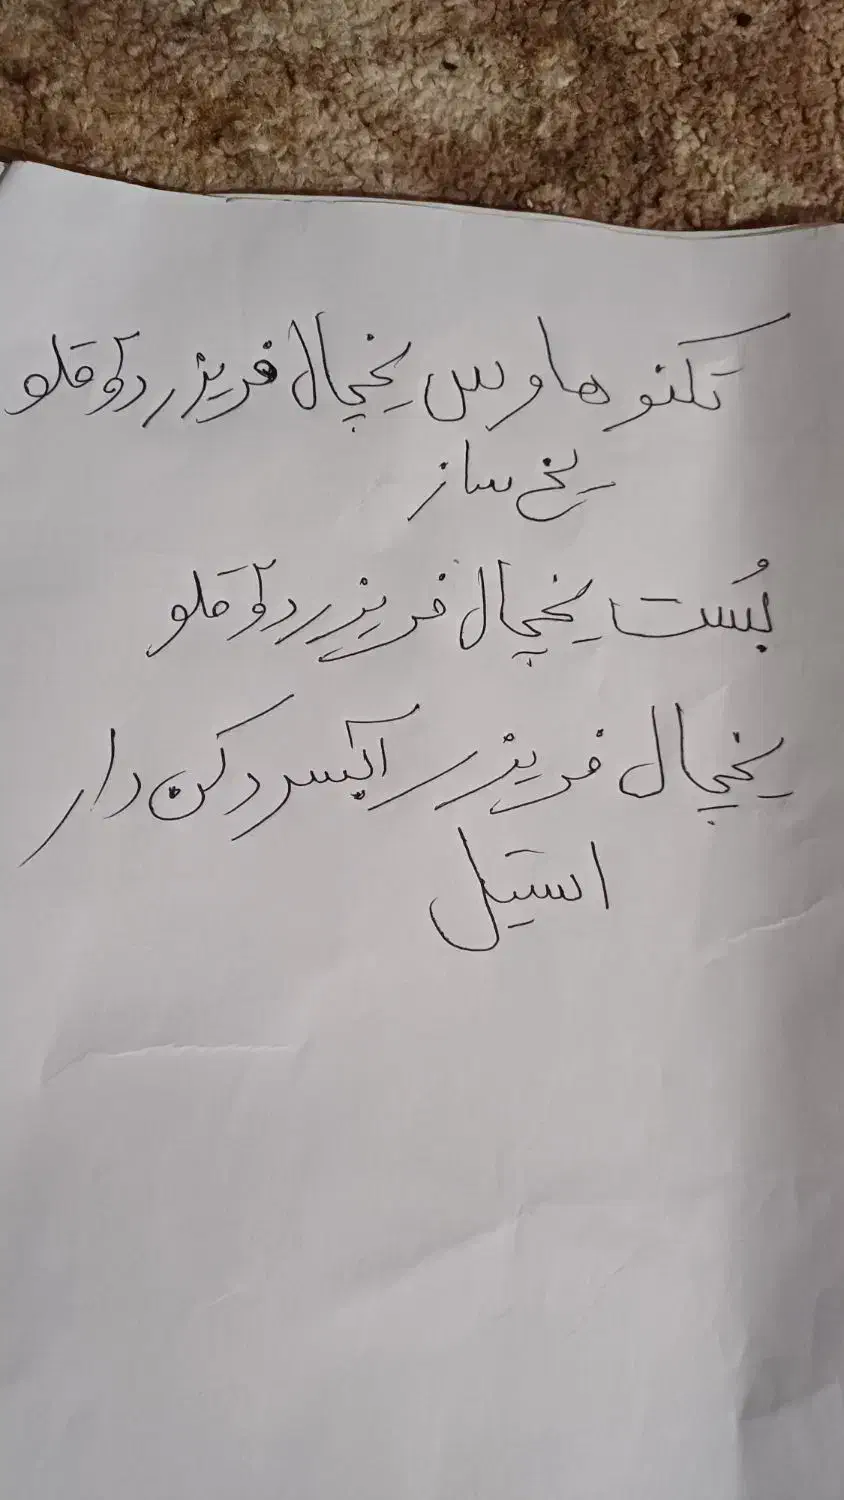 تکنو هاوس یخچال فریزر دوقلو
یخ ساز
بُست یخچال فریزر دوقلو
یخچال فریزر آبسردکن دار
استیل